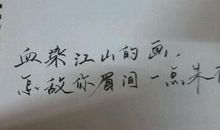 血染江山的画，
怎敌你眉间一点朱